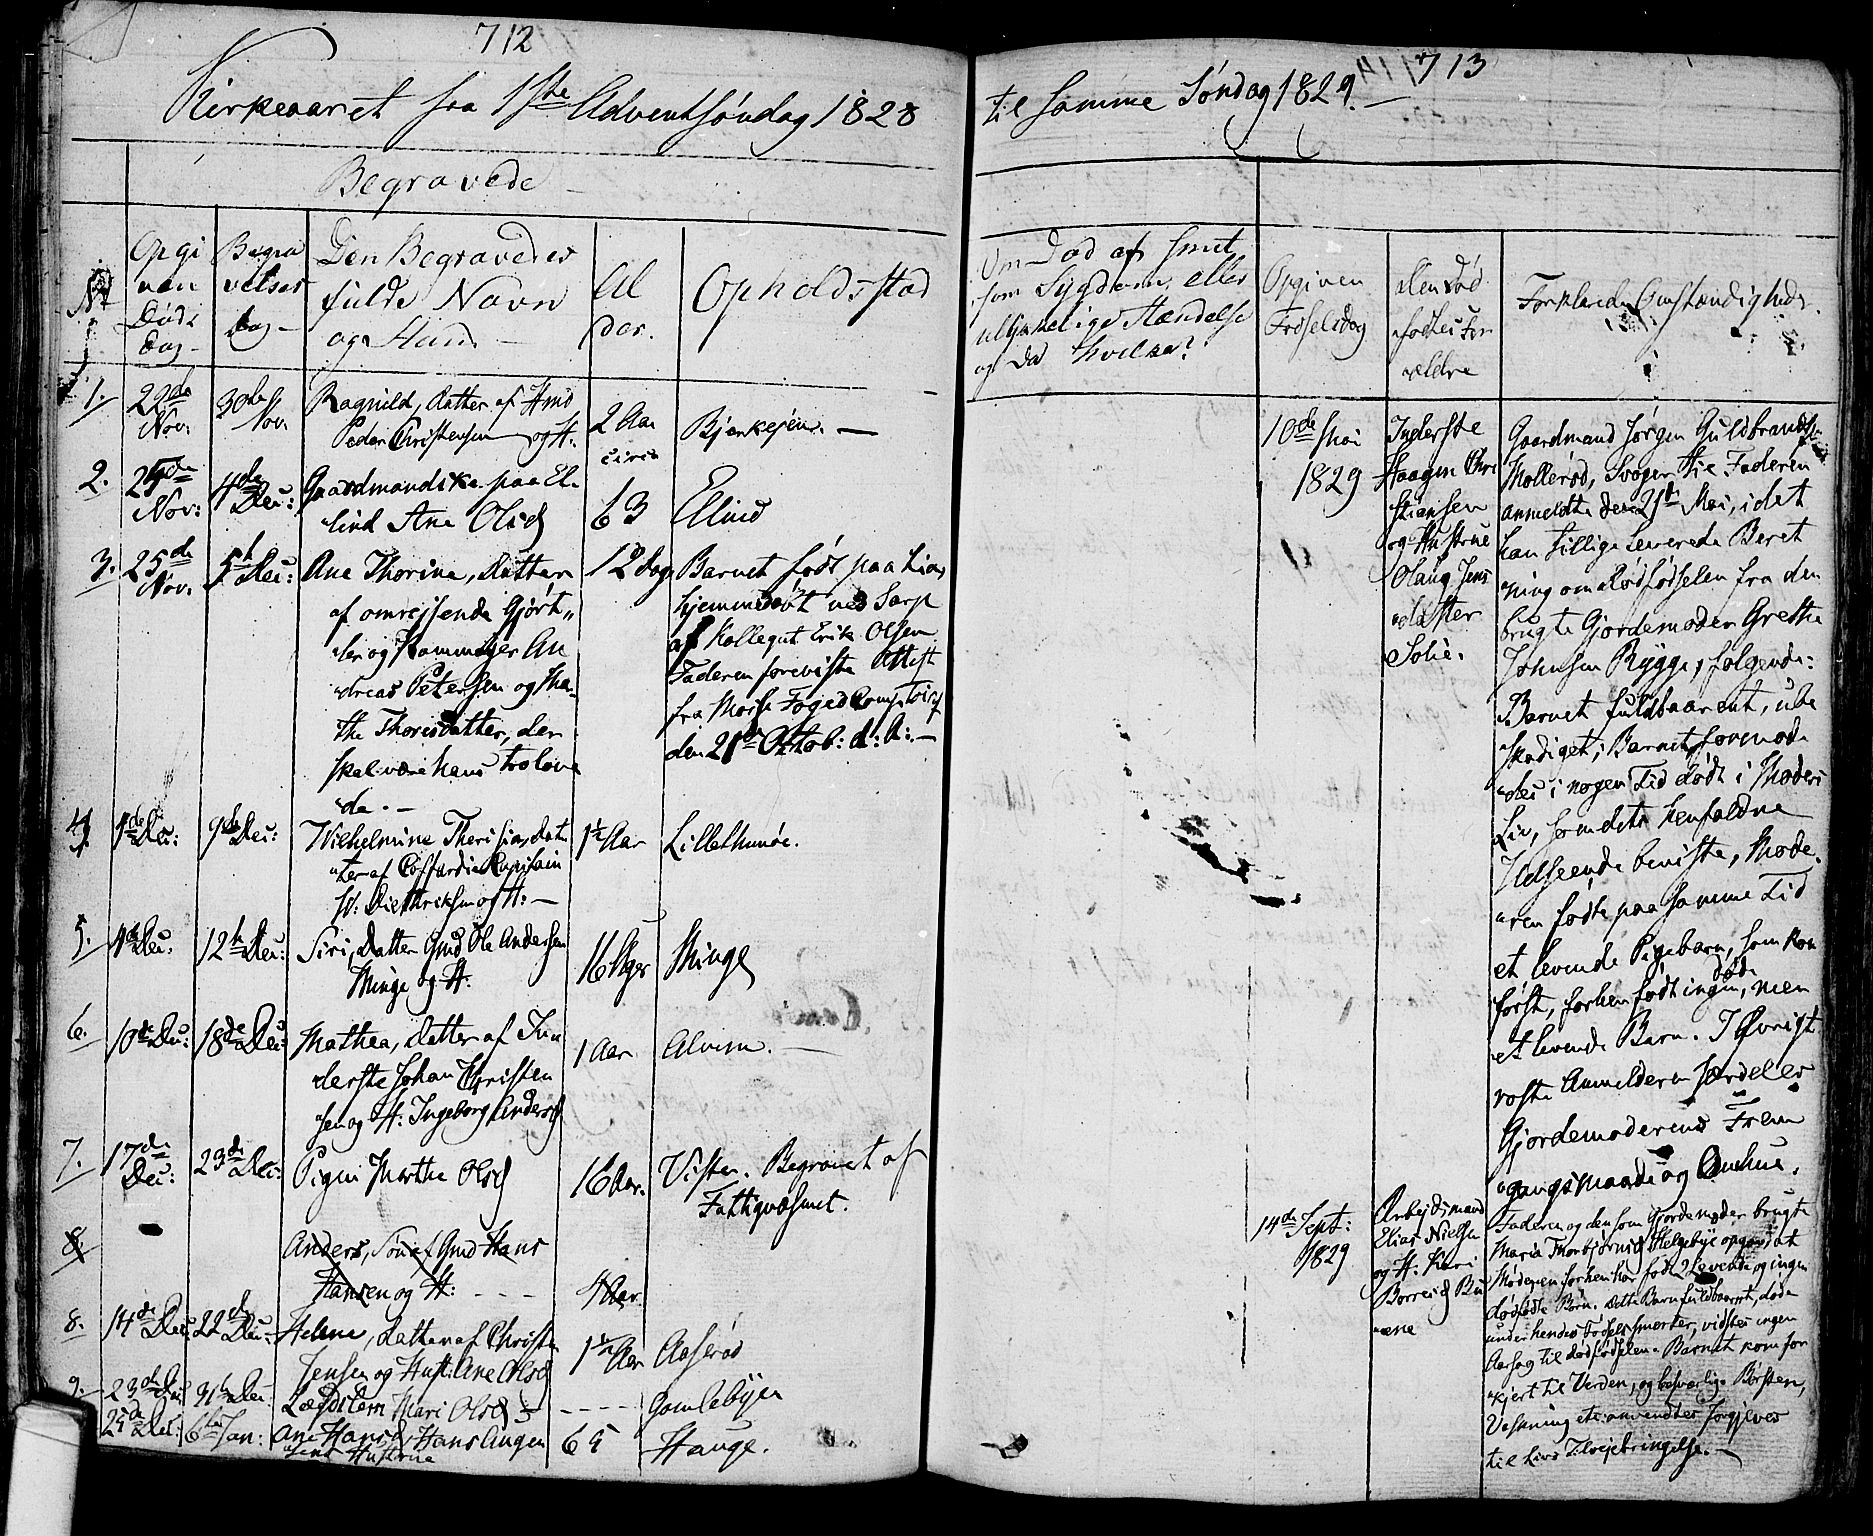 712
Kirkeaaret fra 1ste Adventsøndag 1828
Begravede
No
Opgi
ven
Døds
Dag
Begra
velses
Dag
Den Begravedes
fulde Navn
og Stand
Al
der.
Opholdsstad
1.
22de
Nov.
30de
Nov.
Ragnild, datter af Hmd
Peder Christensen og H.
2 Aar
circa
Bjerkejen. —
2.
Nov:
4de Dec:
Gaardmandske paa El-
lind Ane Olsd
63
Ellind
3.
25de
Nov.
5t Dec:
Ane Thorine, datter
af omrejsende Gjørt-
ler og Andreas Petersen og Ma-
the Thoresdatter, der
skal være hans trolove
de. —
12 dage
Barnet født paa
hjemmedøbt ved Sarp
af Kollegut Erik Olsen
Faderen foreviste Attest
fra Morse Foged
den 21de Octob: d: A: —
4.
4de Dec:
9de Dec:
Wilhelmine dat
ter af Coffardie Capitain
H:
1½ Aar
Lillethunøe.
5.
4de Dec:
12te Dec:
Siri, Datter Gmd Ole Andersen
Minge og H.
16 Uger
Minge
6.
10de Dec:
18de Dec:
Mathea, datter af In
derste Johan Christen
sen og H: Ingeborg Andersd
1 Aar
Alvim. —
7.
17de
Dec:
23de Dec:
Pigen Marthe Olsd
16 Aar.
Visten. Begravet af
Fattigvæsnet.
8
Anders, Søn af Gmd Hans
Hansen og H: - - -
4 Aar
8.
14de Dec:
22de Dec:
Helene, datter af Christen
Jensen og Hust: Ane Olsd
1½ Aar
Aaserød
9.
23de Dec
31te Dec
Lægdslem Mari Olsd
- - - -
Gamlebyen
25de Dec:
6te Jan:
Ane Hansd, Hans Augen
sens Hustrue
65
Hauge.
713
til samme Søndag 1829. —
Om Død af smit
som Sygdom, eller
ulykkelige Hændelse
og da hvilken?
Opgiven
Fødselsdag
den død
fødtes For
ældre
Forklarende Omstændigheder.
10de Mai
1829
Inderste
Haagen Chri
stiansen
og Hustrue
Olaug Jens
datter
Solie.
Gaardmand Jørgen Guldbrandsen
Møllerød, Svoger til Faderen
anmeldte den 21de Mai, idet
han tillige leverede Beret
ning om dødfødselen fra den
brugte Gjordemoder Grethe
Johnsen Rygge, følgende:
Barnet fuldbaarent, ube
skadiget; Barnet formod-
des i nogen Tid dødt i Moders
Liv, som dets henfaldne
Udseende beviste, Mode-
ren fødte paa samme Tid
et levende Pigebarn, som kom
først, forhen født ingen døde, men
et levende Barn. I Øvrigt
roste Anmelderen særdeles
Gjordemoderens Frem
gangsmaade og Omhue.
14de Sept:
1829
Arbejdsmand
Elias Nielsen
og H: Kari
Faderen og den som Gjordemoder brugte
Maria Thorbjørnsd Helgebye opgav, at
Moderen forhen har født 2 Levende og ingen
dødfødte Børn. Dette Barn fuldbaaret, døde
under hendes Fødselssmerter, vidstes ingen
Aarsag til dødfødselen. Barnet kom for
kjert til Verden, og besværlig. Børsten,
Vaskning etc. anvendtes forgjeves
til Livs Tilvejebringelse. —